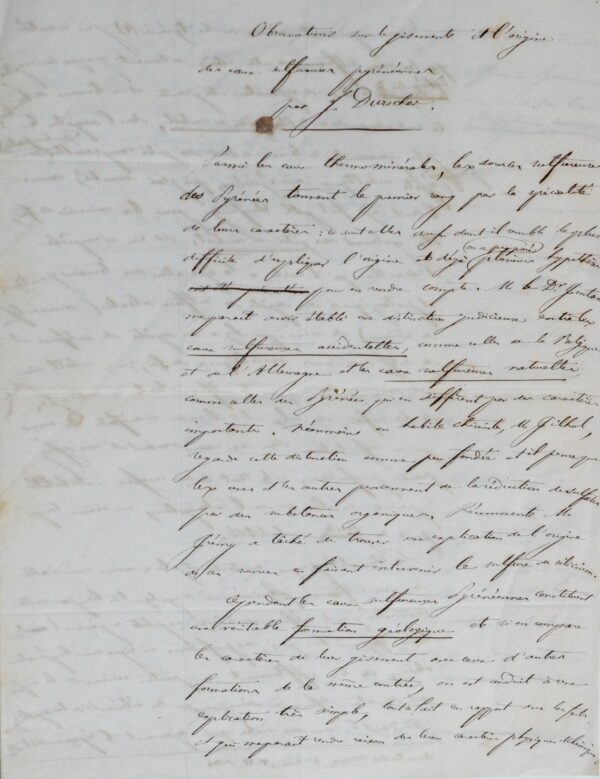 Observations sur le gisement et l'origine
des eaux sulfureuses pyrénéennes,
par J. Durocher.
Parmi les eaux thermominérales, les sources sulfureuses
des Pyrénées tiennent le premier rang par la spécialité
de leurs caractères : ce sont elles aussi dont il semble le plus
difficile d'expliquer l'origine et déjà (on a proposé) plusieurs hypothèses
pour en rendre compte. M. le Dr
me parait avoir établi une distinction judicieuse entre les
eaux sulfureuses accidentelles, comme celles de la Belgique
et de l'Allemagne et les eaux sulfureuses naturelles,
comme celles des Pyrénées qui en diffèrent par des caractères
importants. Néanmoins un habile chimiste, M.
regarde cette distinction comme peu fondée et il pense que
les unes et les autres proviennent de la réduction de sulfates
par des substances organiques. Récemment M.
Frémy a tâché de trouver une explication de l'origine
de ces sources en faisant intervenir le sulfure de silicium.
Cependant les eaux sulfureuses Pyrénéennes constituent
une véritable formation géologique et si on compare
les caractères de leur gisement avec ceux d'autres
formations de la même contrée, on est conduit à une
explication très simple, tout à fait en rapport avec les faits
et qui me parait rendre raison de leurs caractères physiques et chimiques